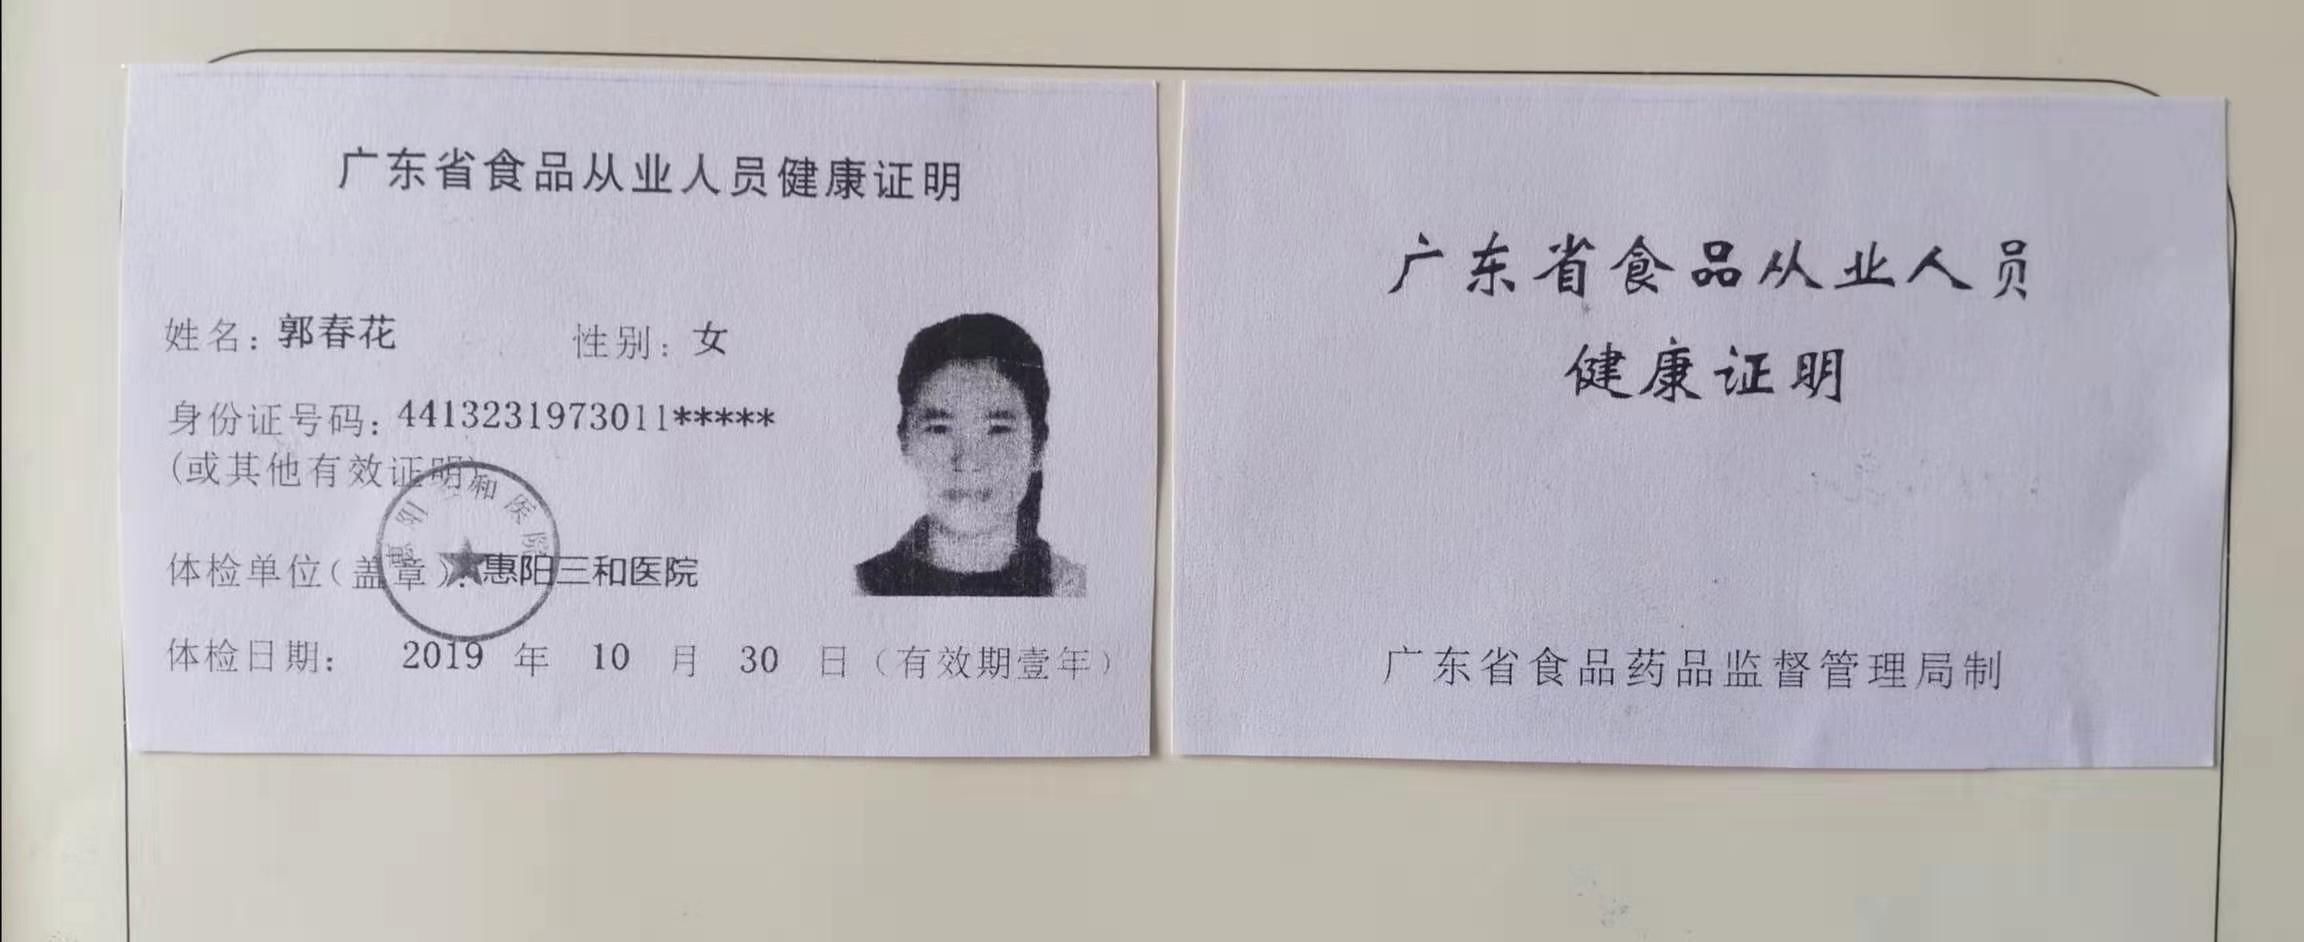 广东省食品从业人员健康证明
姓名：郭春花 性别：女
身份证号码：4413231973011*****
(或其他有效证明)
体检单位(盖章)：惠阳三和医院
体检日期： 2019 年 10 月 30 日（有效期壹年）
广东省食品从业人员
健康证明
广东省食品药品监督管理局制